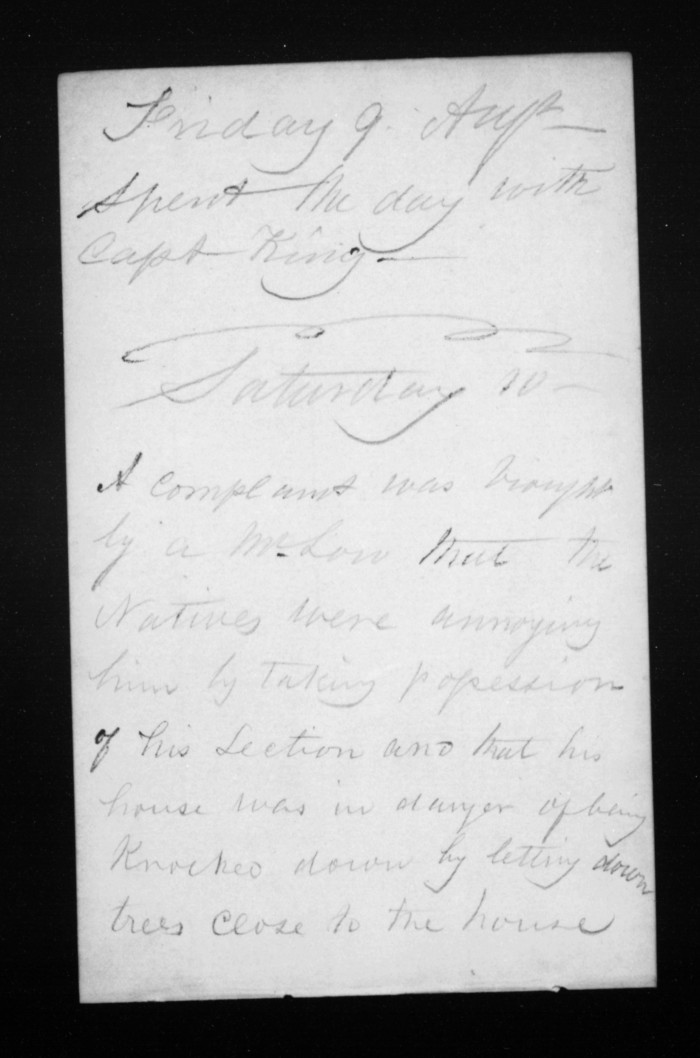 Friday 9. Augt
Spent the day with
Capt King
Saturday 10
A complaint was brought
by a Mr Low that the
Natives were annoying
him by taking possession
of his Section and that his
house was in danger of being
Knocked down by letting down
trees close to the house